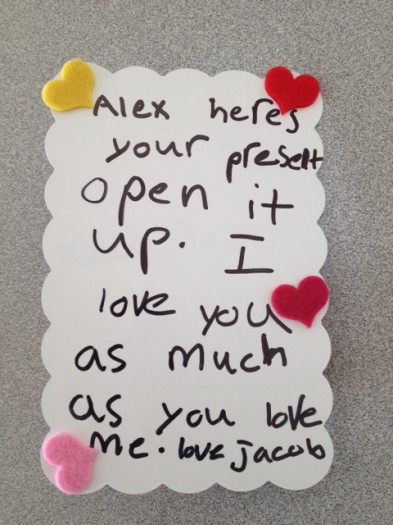 Alex heres
your presett
open it
up. I
love you
as much
as you love
me. love jacob